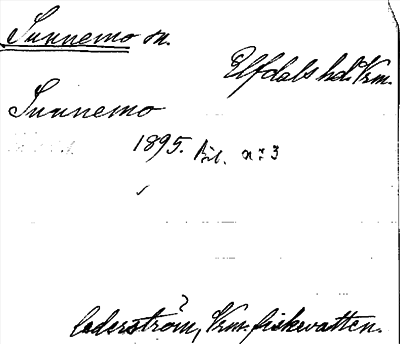 Sunnemo sn.
Elfdals hd. Vrm.
Sunnemo
1895. Bil. nr 3
Cederström, Vrm. fiskevatten.